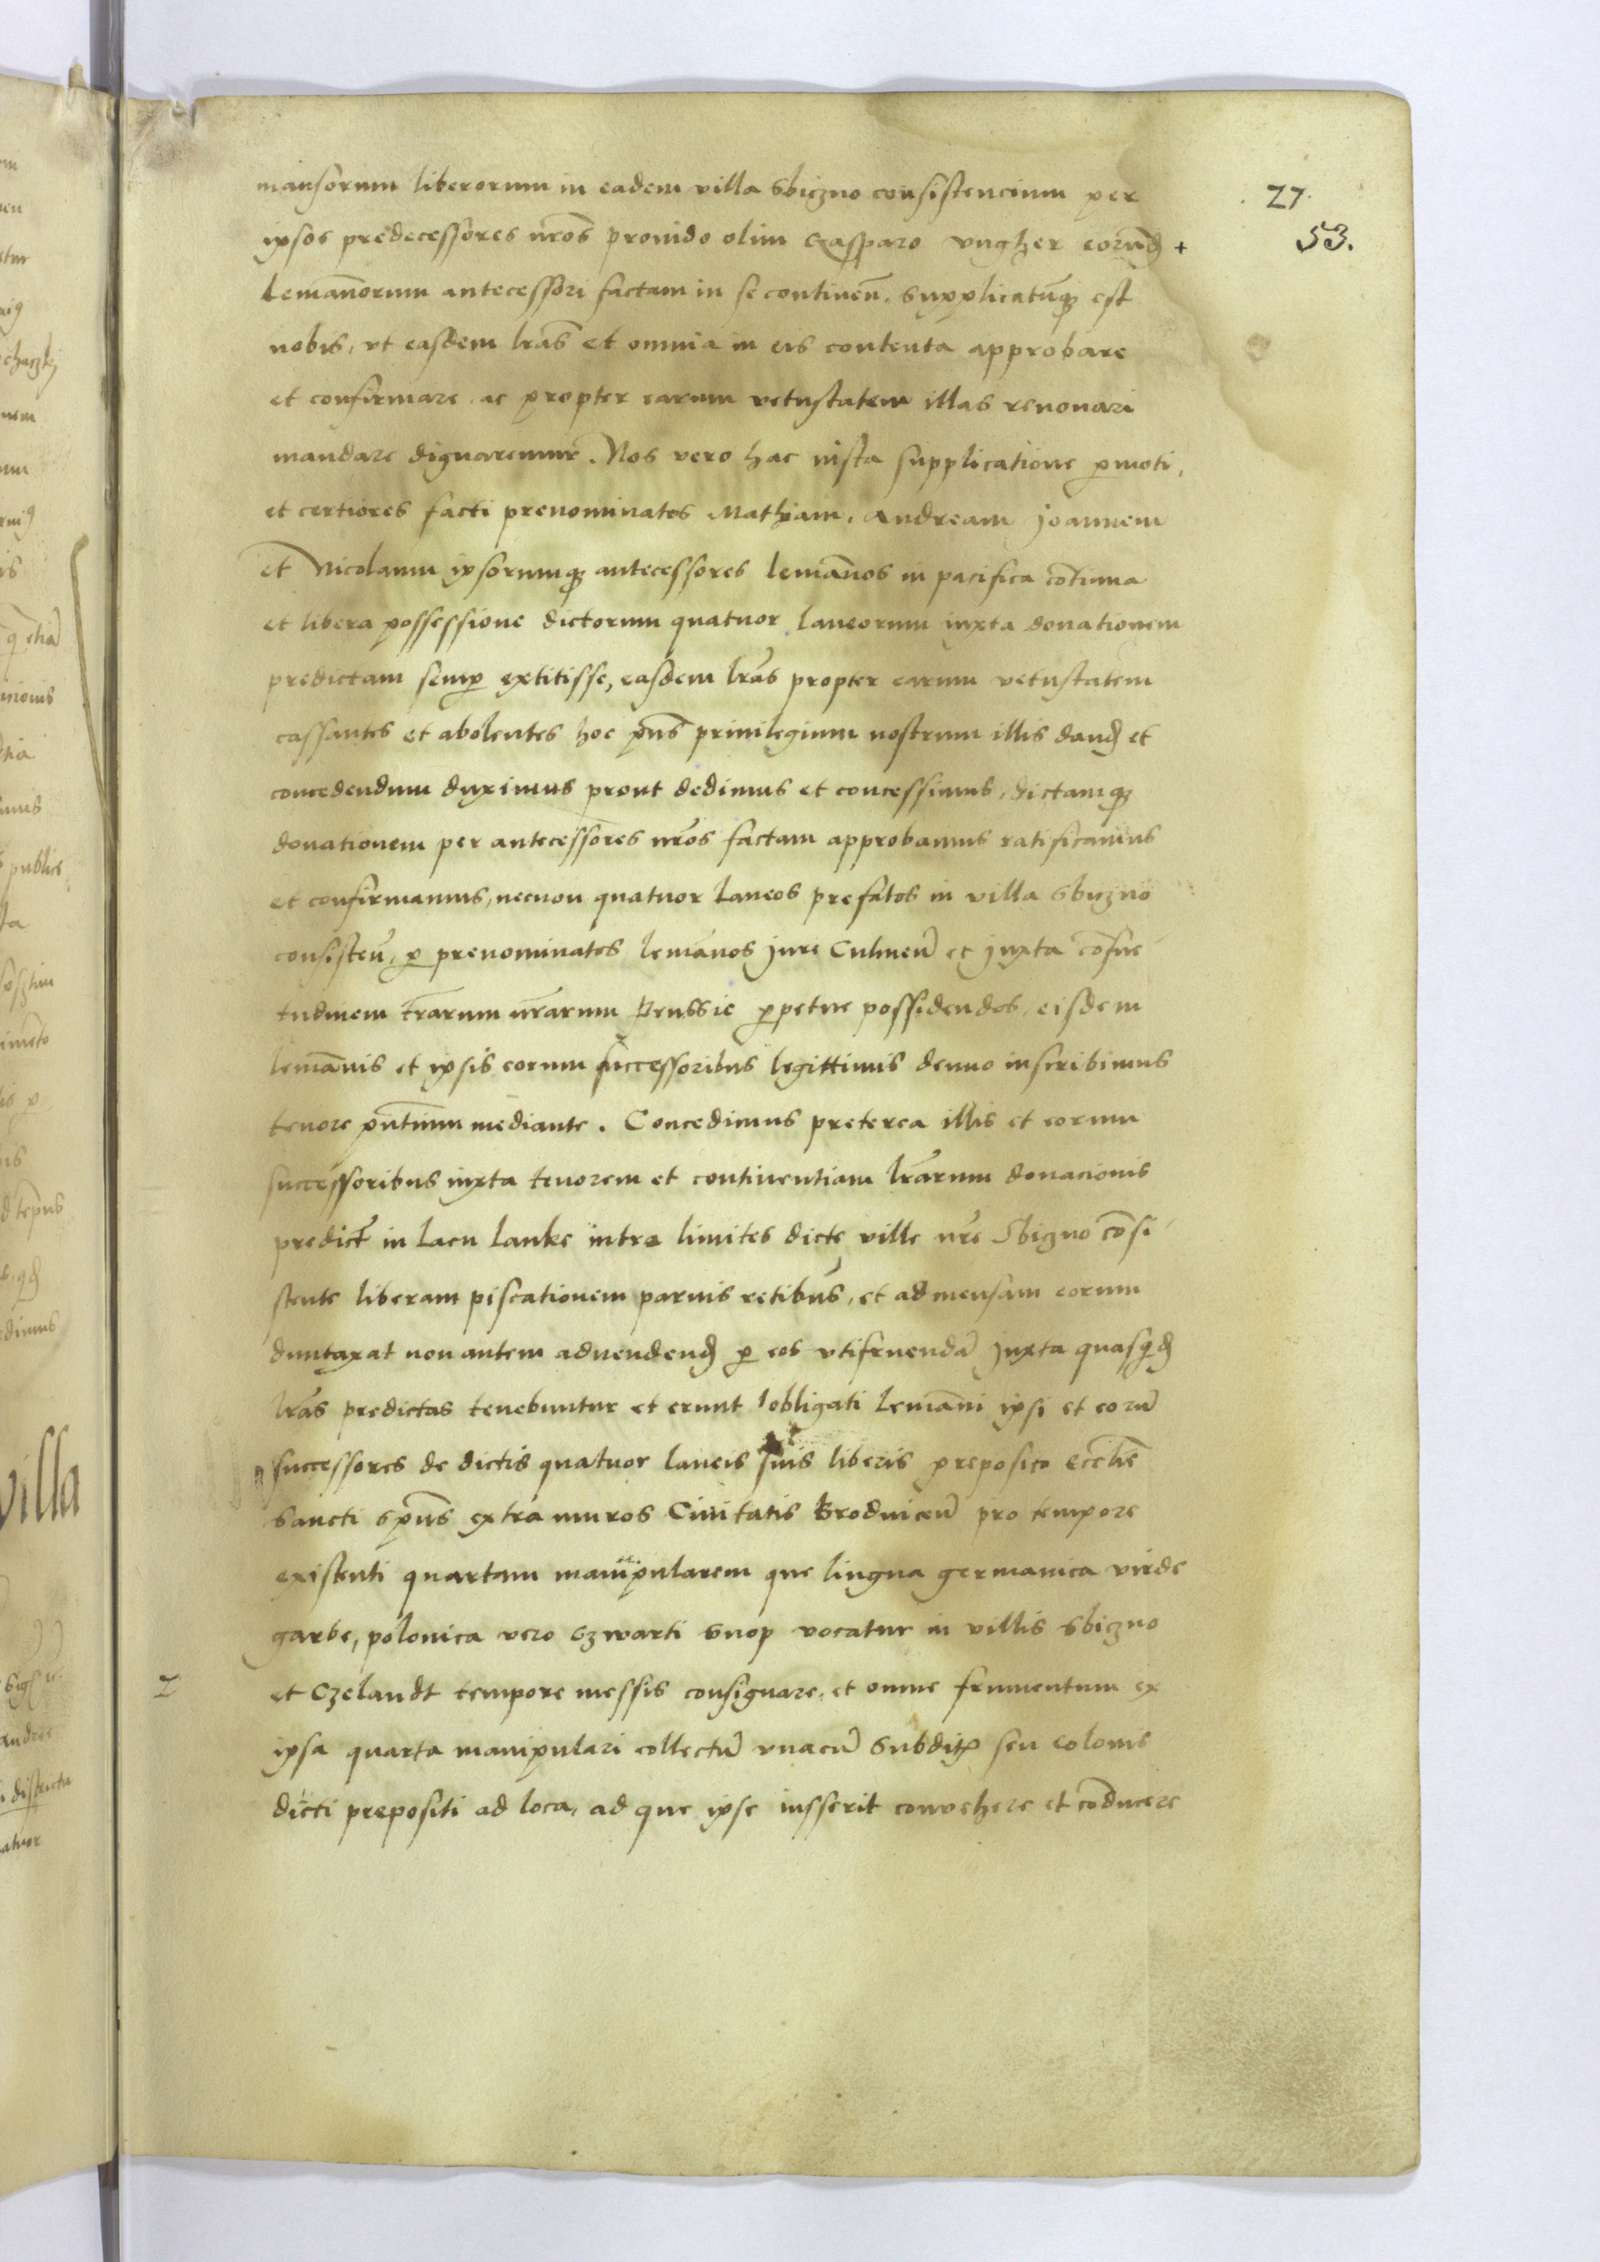 27.
53.
mansorum liberorum in eadem villa Sbiczno consistencium per
ipsos predecessores nr̃os prouido olim Casparo Vngher eorund̃ +
Lemañorum antecessori factam in se contineñ. Supplicatũq est
nobis, vt easdem lr̃as et omnia in eis contenta approbare
et confirmare ac propter earum vetustatem illas renouari
mandare dignaremur. Nos vero hac iusta supplicatione p̱moti,
et certiores facti prenominatos Mathiam, Andream Joannem
et Nicolaum ipsorumq antecessores lemãnos in pacifica cõtinua
et libera possessione dictorum quatuor laneorum iuxta donationem
predictam semp̱ extitisse, easdem lr̃as propter earum vetustatem
cassantes et abolentes hoc pñs priuilegium nostrum illis dand̃ et
concedendum duximus prout dedimus et concessimus, dictamq
donationem per antecessores nr̃os factam approbamus ratificamus
et confirmamus, necnon quatuor laneos prefatos in villa Sbiczno
consisteñ, p̱ prenominatos lemãnos jure Culmeñ et juxta cõsue
tudinem tr̃arum nr̃arum Prussie p̱petue possidendos, eisdem
lemãnis et ipsis eorum successoribus legittimis denuo inscribimus
tenore pñtium mediante. Concedimus preterea illis et eorum
successoribus iuxta tenorem et continentiam lr̃arum donacionis
predict̃ in lacu Lanke intra limites dicte ville nr̃e Sbiczno cõsi
stente liberam piscationem paruis retibus, et ad mensam eorum
duntaxat non autem ad vendend̃ p̱ eos vtifruendã juxta quasqid̃
lr̃as predictas tenebuntur et erunt obligati Lemãni ipsi et eorũ
successores de dictis quatuor laneis suis liberis preposito eccl̃ie
Sancti sp̃us extra muros Ciuitatis Brodniceñ pro tempore
existenti quartam manipularem que lingua germanica virde
garbe, polonica vero czwarti snop vocatur in villis Sbiczno
et Czelandt tempore messis consignare, et omne frumentum ex
ipsa quarta manipulari collectũ vnacũ subdit̃ seu colonis
dicti prepositi ad loca, ad que ipse iusserit convehere et cõducere